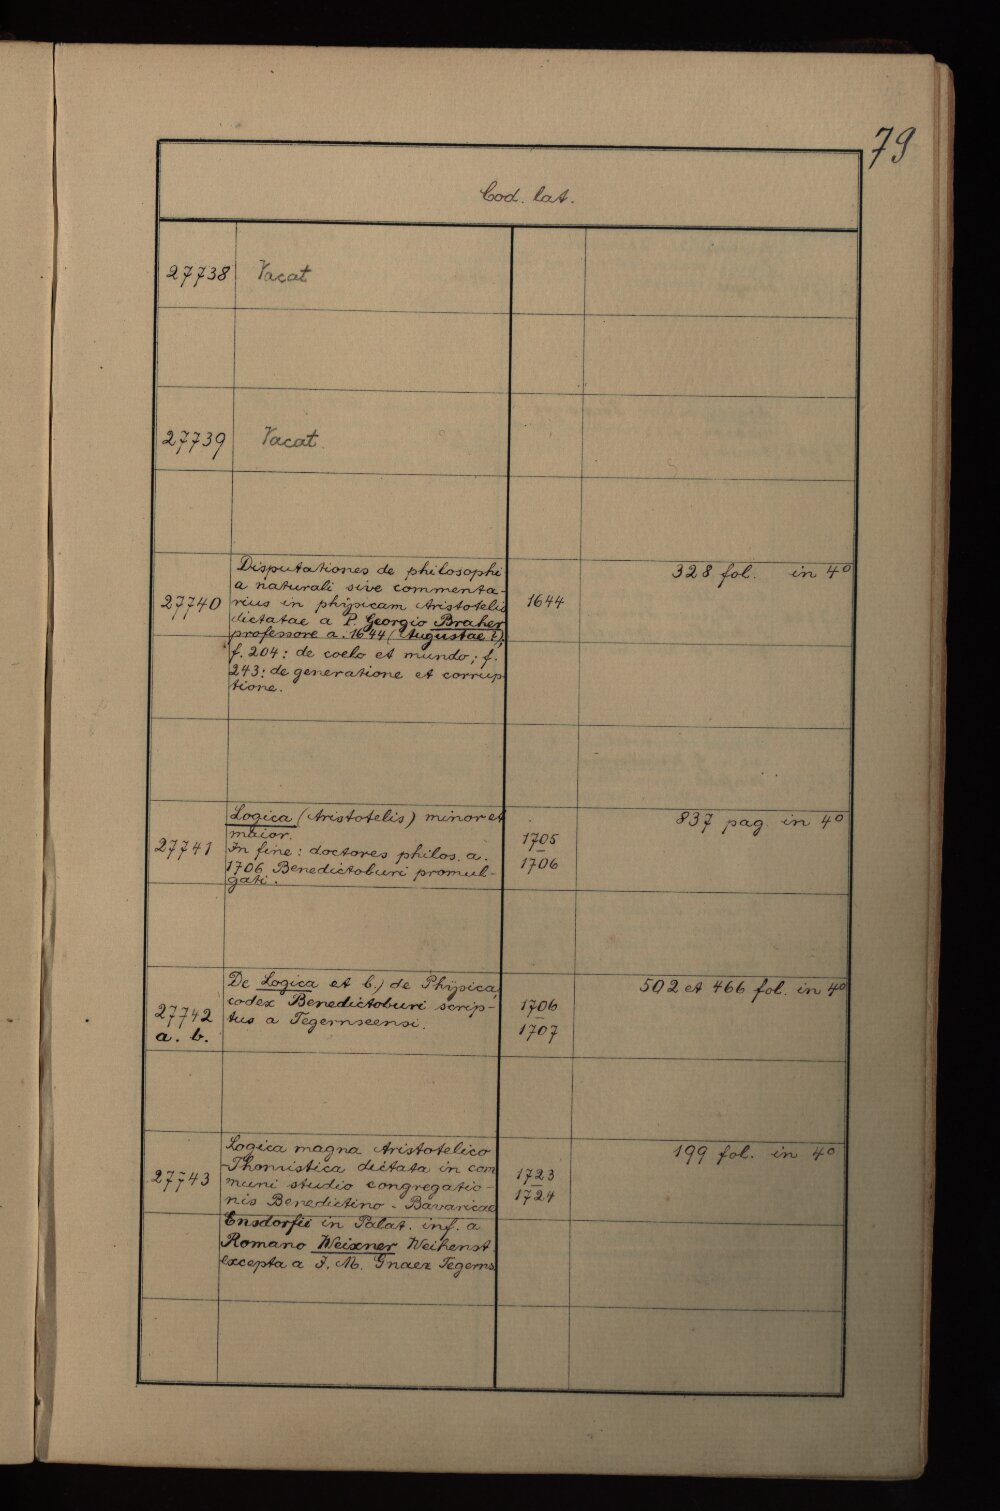 79
Cod. lat.
27738 Vacat
27739 Vacat.
Disputationes de philosophi
a naturali sive commenta-
27740 rius in physicam Aristotelis 1644 328 fol. in 4º
dictatae a P. Georgio Braher
professore a. 1644 (Augustae ?);
f. 204: de coelo et mundo; f.
243: de generatione et corrup
tione.
Logica (Aristotelis) minor et 837 pag. in 4º
maior.
27741 In fine: doctores philos. a. 1705
1706 Benedictoburi promul- 1706
gati.
De Logica et b.) de Physica, 502 et 466 fol. in 4º
codex Benedictoburi scrip- 1706
27742 tus a Tegernseensi. 1707
a. b.
Logica magna Aristotelico 199 fol. in 4º
-Thomistica dictata in com
27743 muni studio congregatio- 1723
nis Benedictino-Bavaricae 1724
Ensdorfii in Palat. inf. a
Romano Weixner Weihenst.
excepta a J. M. Gnaez Tegerns.